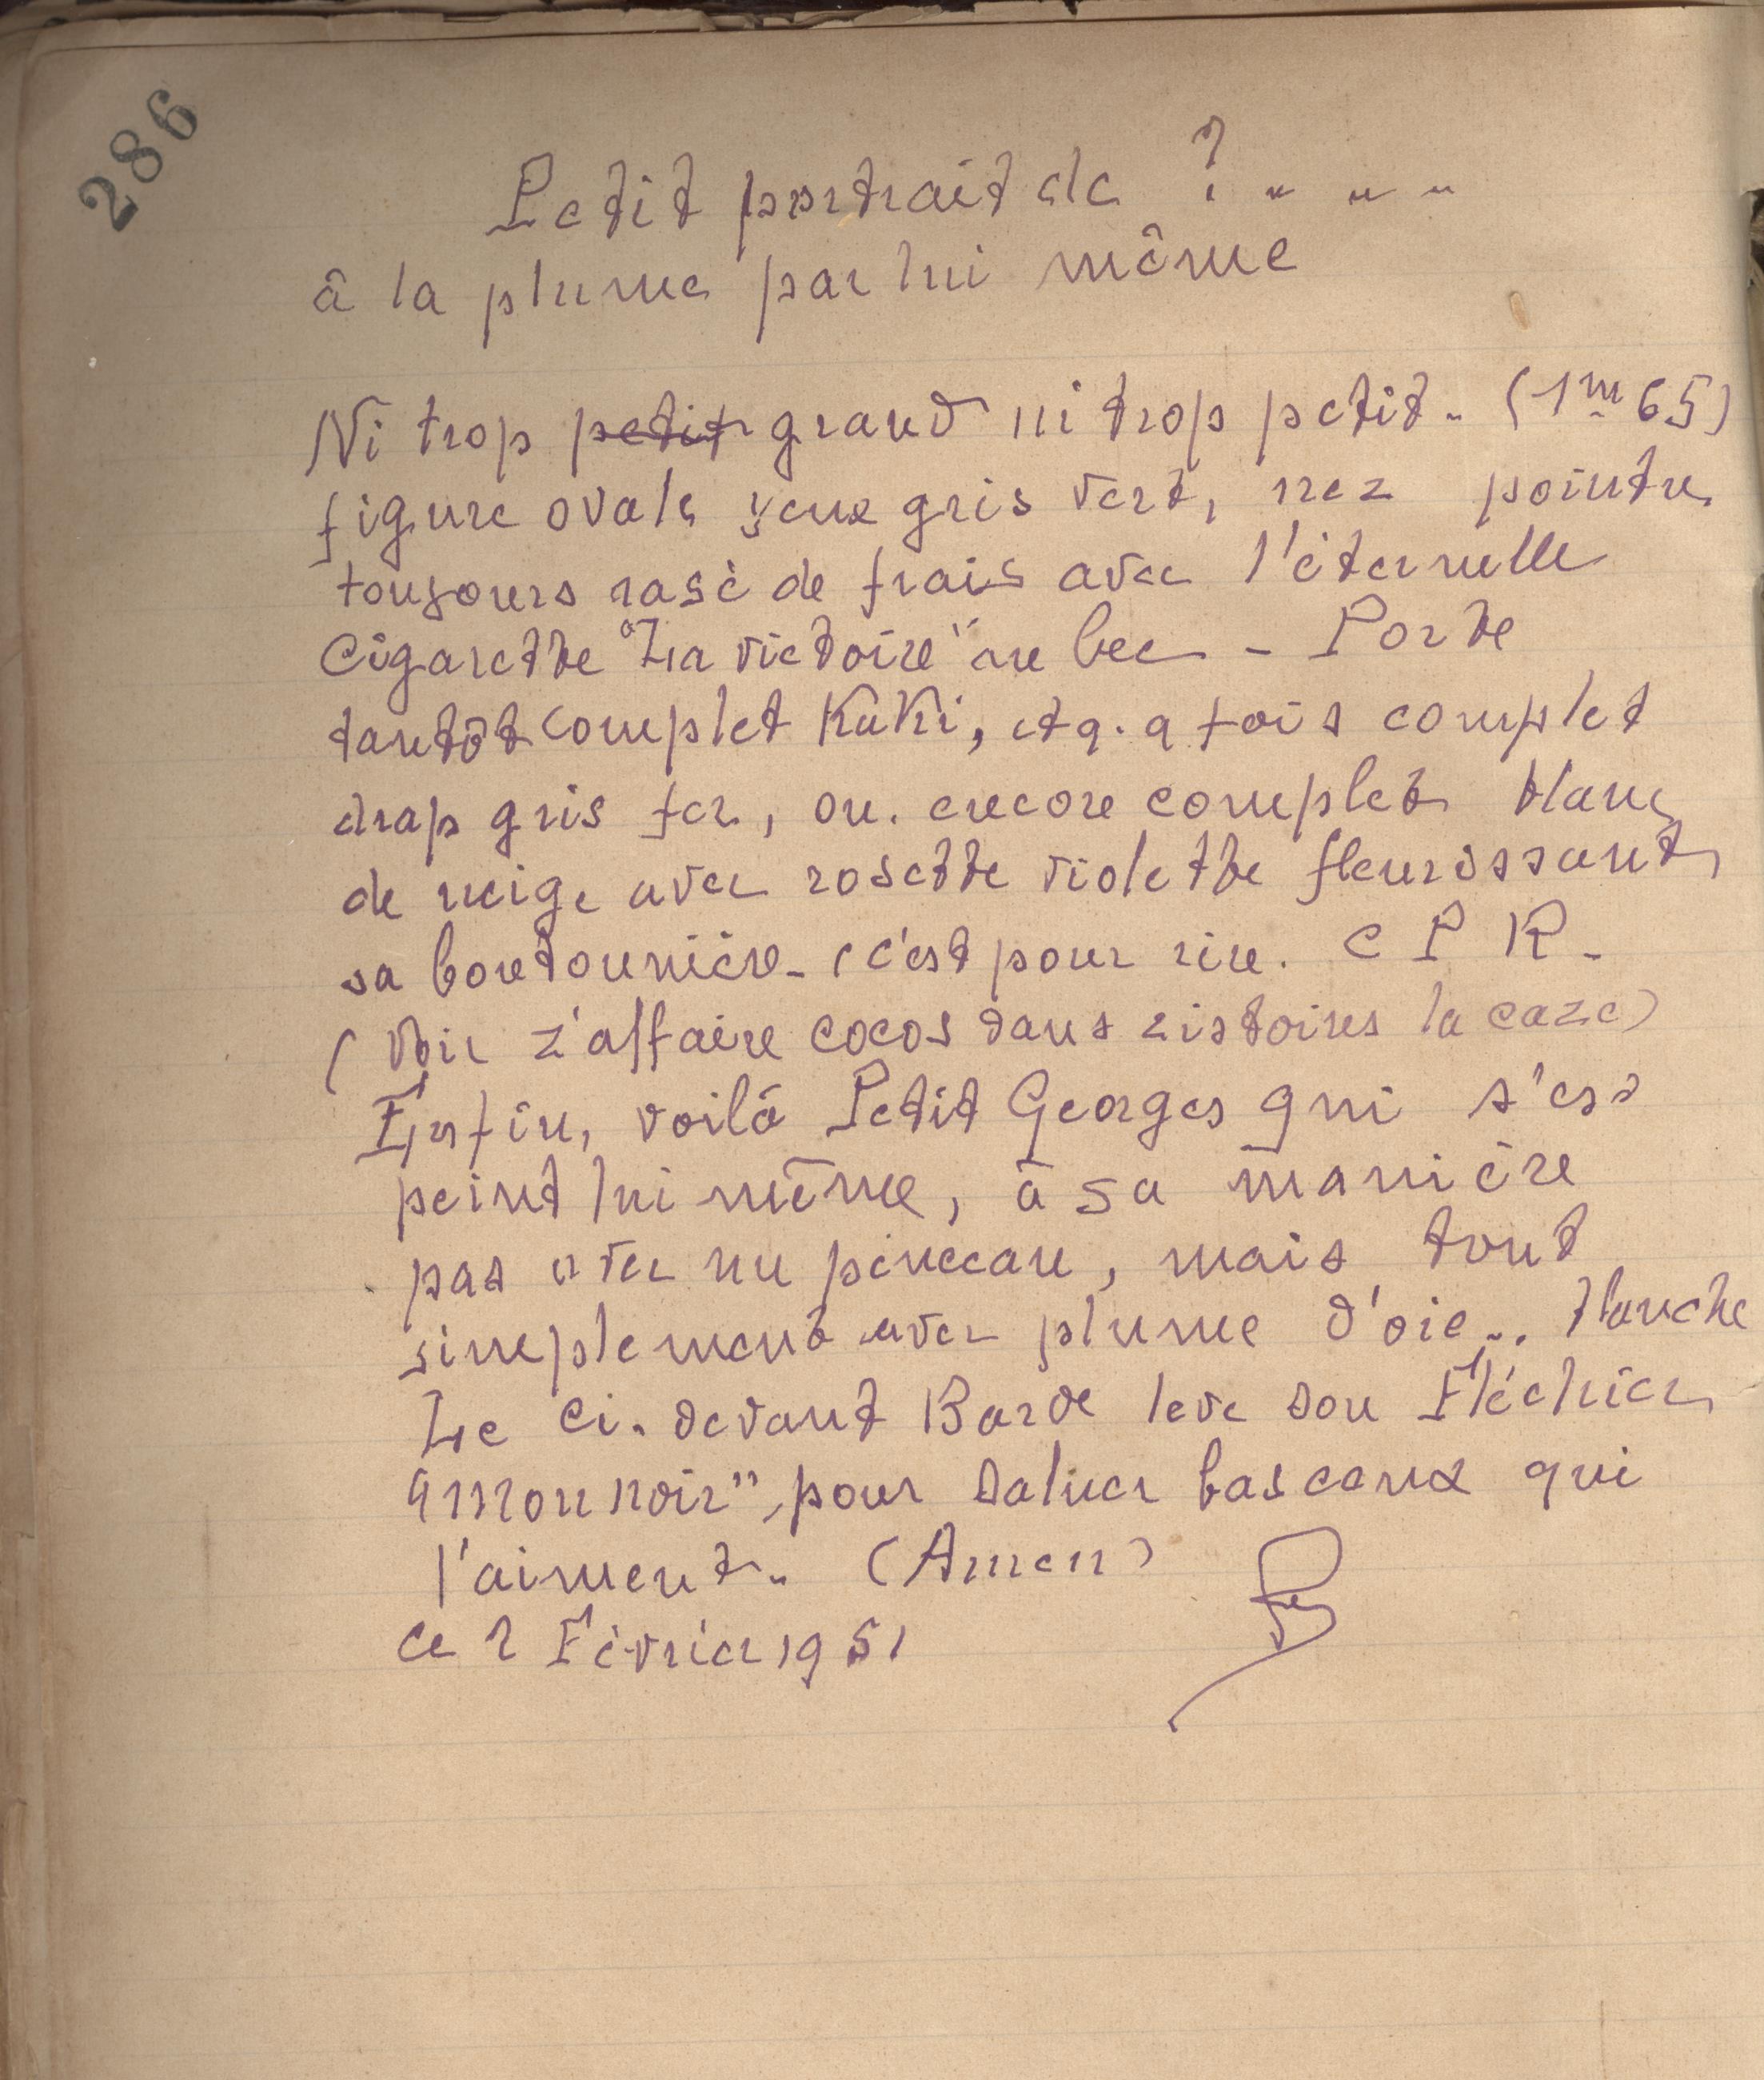 286
Petit portrait de ? . . .
à la plume par lui même
Ni trop petit grand ni trop petit. (1m 65)
figure ovale yeux gris vert, nez pointu
toujours rasé de frais avec l'éternelle
cigarette "La victoire" au bec - Porte
tantôt complet Kaki, et q.q fois complet
drap gris fer, ou encore complet blanc
de neige avec rosette violette fleurissant
sa boutonnière - (c'est pour rire. C P R -
(Voir z'affaire cocos dans zistoires la caze)
Enfin, voilà Petit Georges qui s'est
peint lui même, à sa manière
pas avec un pinceau, mais tout
simplement avec plume d'oie.. blanche
Le ci-devant Barde leve son Fléchier
"mon noir", pour saluer bas ceux qui
l'aiment. (Amen)
ce 2 Février 1951